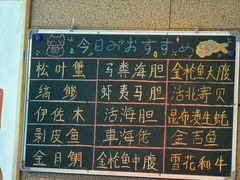 今日のおすすめ
松叶蟹 马粪海胆 金枪鱼大腹
缟鲹 虾夷马胆 活北寄贝
伊佐木 活海胆 昆布烫生蚝
剥皮鱼 車海佬 金吉鱼
金目鲷 金枪鱼中腹 雪花和牛